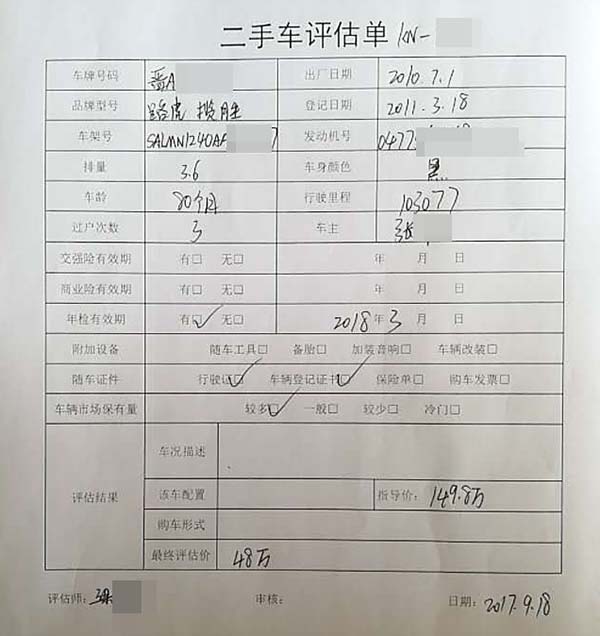 二手车评估单 KN-
车牌号码 晋A 出厂日期 2010.7.1
品牌型号 路虎 揽胜 登记日期 2011.3.18
车架号 SALMN1240AA 7 发动机号 0477
排量 3.6 车身颜色 黑
车龄 80个月 行驶里程 103077
过户次数 3 车主 张
交强险有效期 有□ 无□ 年 月 日
商业险有效期 有□ 无□ 年 月 日
年检有效期 有□✓ 无□ 2018年3月 日
附加设备 随车工具□ 备胎□ 加装音响□ 车辆改装□
随车证件 行驶证□✓ 车辆登记证书□✓ 保险单□ 购车发票□
车辆市场保有量 较多□✓ 一般□ 较少□ 冷门□
车况描述
评估结果 该车配置 指导价: 149.8万
购车形式
最终评估价 48万
评估师: 梁 审核: 日期: 2017.9.18